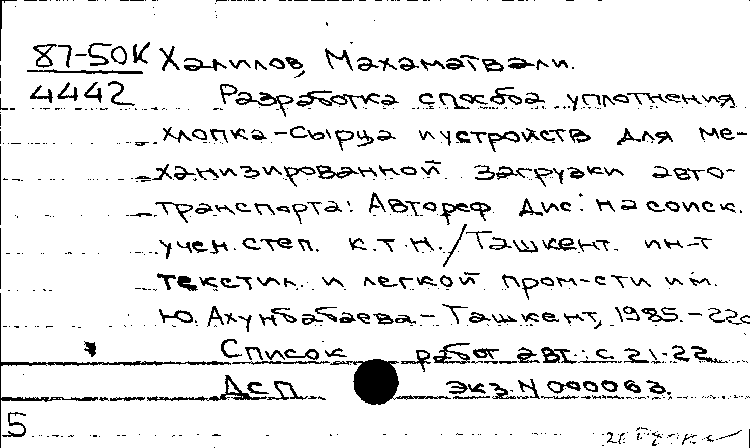 87-50К Халилов, Махаматвали.
4442 Разработка способа уплотнения
хлопка-сырца и устройств для ме-
ханизированной загрузки авто-
транспорта: Автореф. дис. на соиск.
учен. степ. к.т.н. / Ташкент. ин-т
текстил. и легкой пром-сти им.
Ю. Ахунбабаева - Ташкент, 1985. - 22с
Список работ авт.: с. 21-22
ДСП экз. N 000063.
5